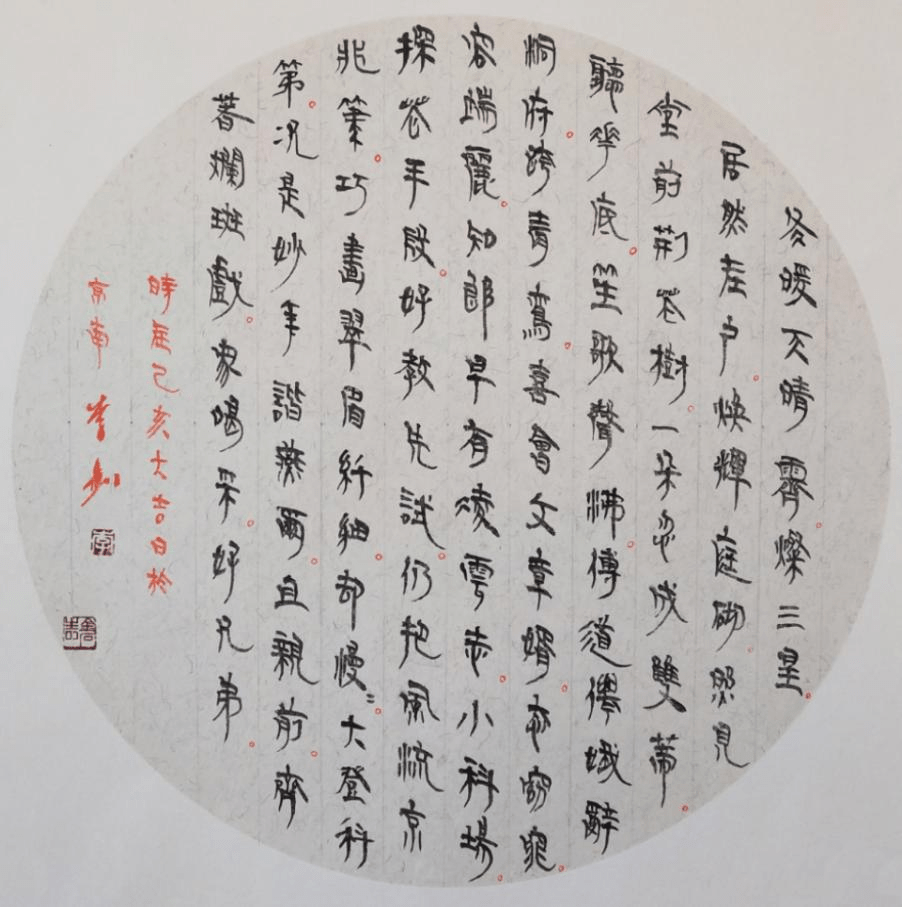 冬暖天晴霽燦三星
居然在户煥輝庭砌忽見
堂前荊花樹一朵忽成雙蒂
聽華底笙歌聲沸傳道僊娥辭
洞府跨青鸞喜會文章婿态窈窕
容端麗知郎早有凌雲志小科場
探花手段好教先試仍把風流京
兆筆巧畫翠眉纖細却慢〻大登科
第況是妙年諧燕爾且親前齊
著斕斑戲衆喝采好兄弟
時在己亥大吉日於
京南李
李